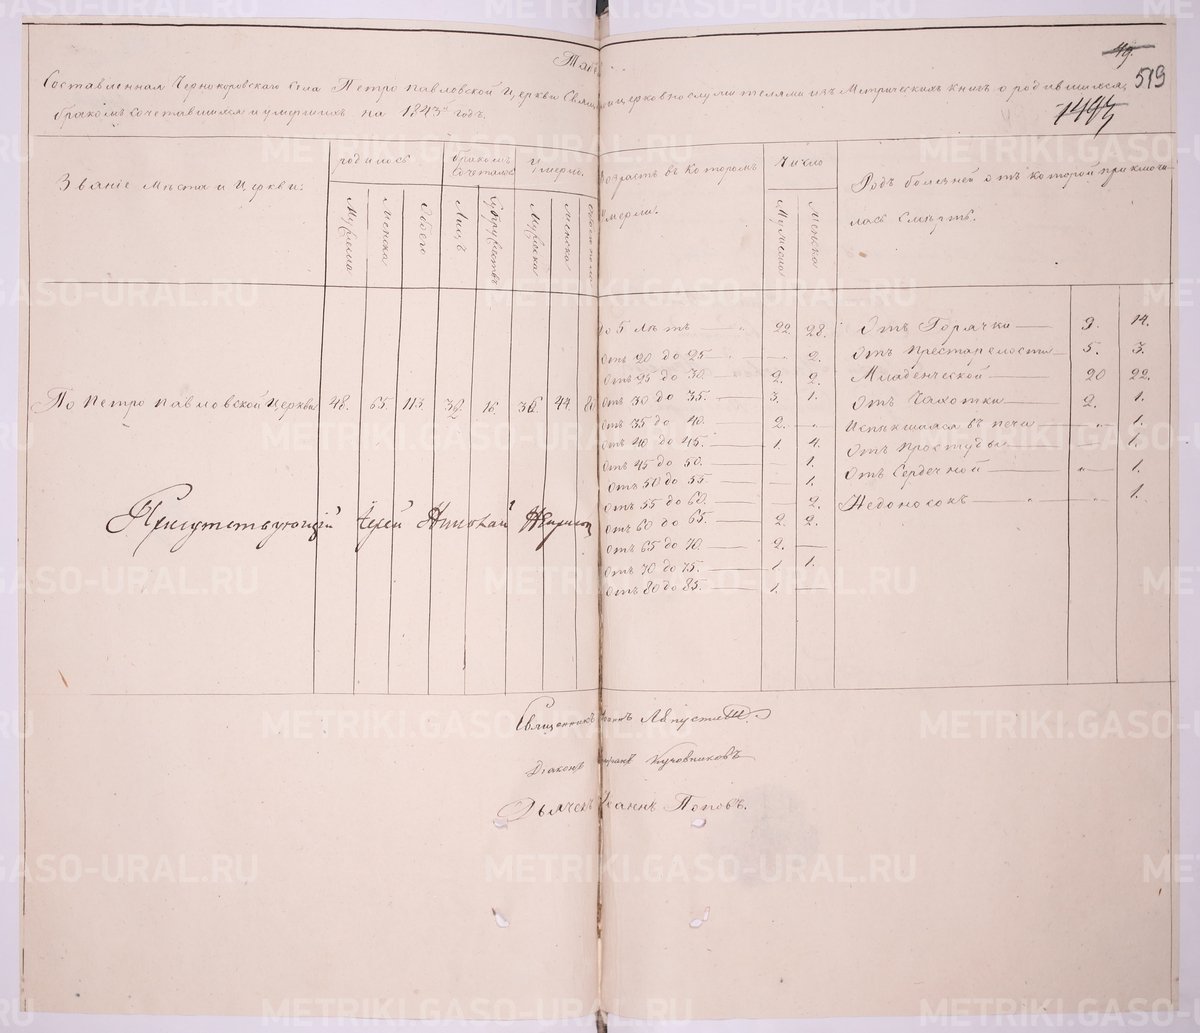 Таб
49.
519
1493
Составленная Чернокоровскаго села Петро павловской Церкви Свящ церковнослужителями изъ Метрическихъ книгъ о родившихся,
бракомъ сочетавшихся и умершихъ на 1843й годъ.
Званіе Места и Церкви.
родилось
бракомъ сочеталось
Умерло.
Возрастъ въ которомъ умерли.
Число
Родъ болезней отъ которой приключи-
лась смерть.
Мужеска
Женска
Обоего
Лицъ
Супружествъ
Мужеска
Женска
Обоего пола
Мужеска
Женска
По Петро павловской Церкви 48. 65. 113. 32 16. 36 44. 80
до 5 летъ — 22. 28.
Отъ 20 до 25 — . — 2.
Отъ 25 до 30. — 2. 2.
Отъ 30 до 35. — 3. 1.
Отъ 35 до 40. — 2. „
Отъ 40 до 45. — 1. 4.
Отъ 45 до 50. — — 1.
Отъ 50 до 55. — — 1.
Отъ 55 до 60. — — 2.
Отъ 60 до 65. — 2. 2.
Отъ 65 до 70. — 2. —
Отъ 70 до 75. — 1. 1.
Отъ 80 до 85. — 1. —
Отъ Горячки — 9. 14.
Отъ престарелости — 5. 3.
Младенческой — 20 22.
Отъ Чахотки — 2. 1.
Испекшаяся въ печи — „ 1.
Отъ простуды — „ 1.
Отъ Сердечной — „ 1.
Недоносокъ — „ — „ 1.
Присутствующій Іерей Николай
Священникъ Іоаннъ Ляпустин
Діаконъ Кучовниковъ
Дьячекъ Іоаннъ Поповъ.
METRIKI.GASO-URAL.RU